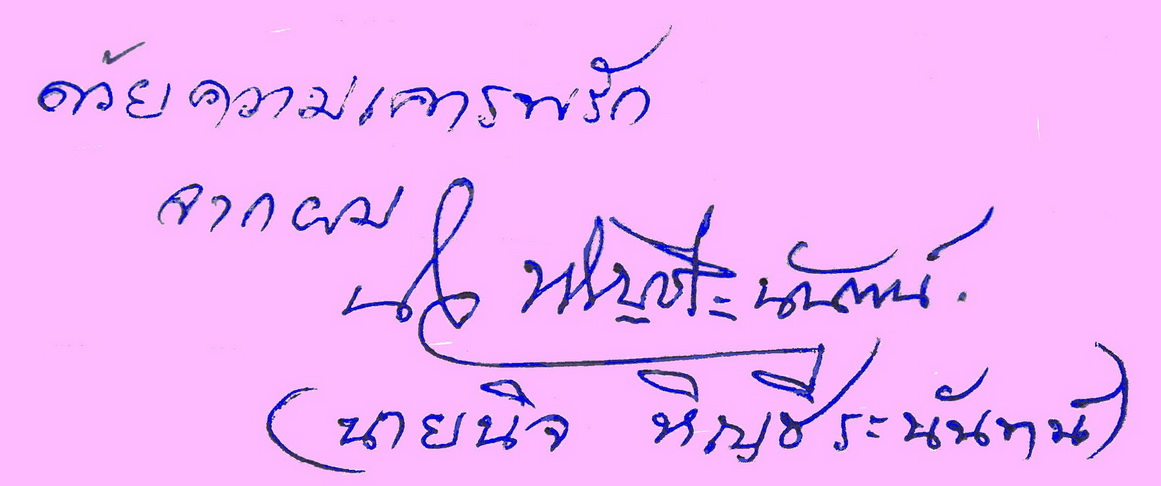 ด้วยความเคารพรัก
จากผม
นิจ หิญชีระนันทน์.
(นายนิจ หิญชีระนันทน์)